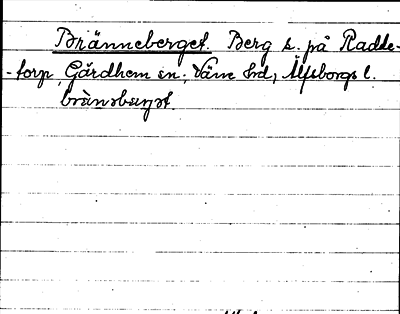 Bränneberget. Berg s. på Radde-
-torp, Gärdhem sn; Väne hd, Älfsborgs l.
brànsbærjət.